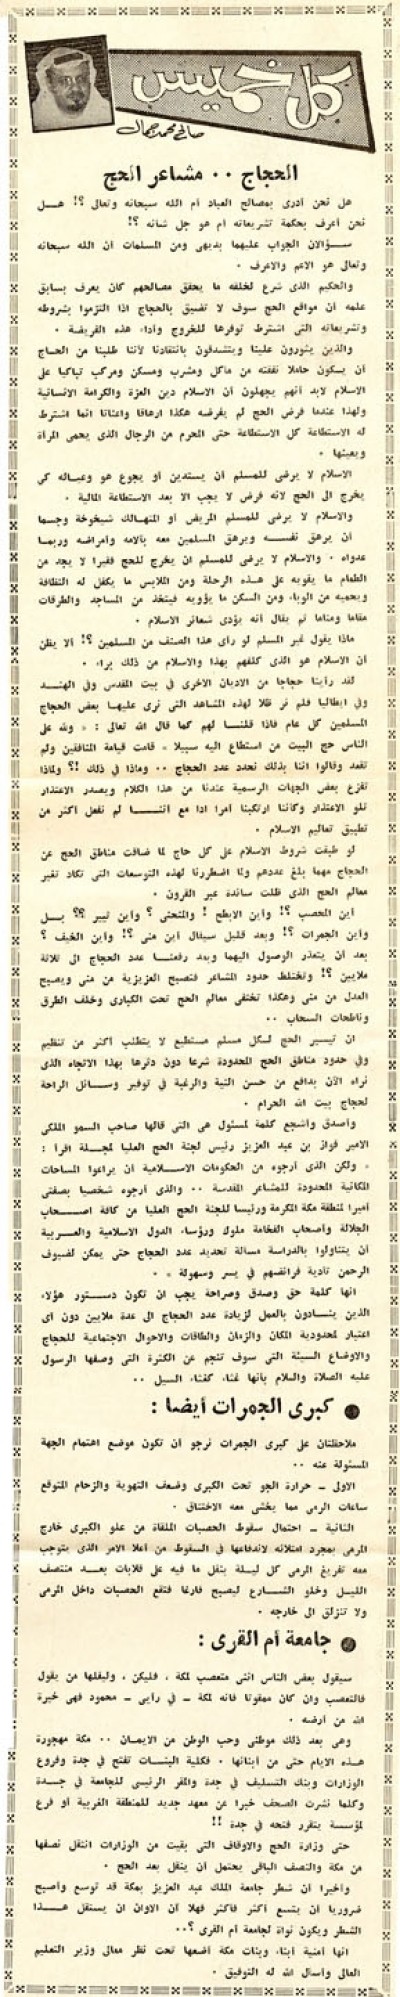 كل خميس
صالح محمد جمال
الحجاج .. مشاعر الحج
هل نحن أدرى بمصالح العباد أم الله سبحانه وتعالى ؟! هــل
نحن أعرف بحكمة تشريعاته أم هو جل شأنه ؟!
ســؤالان الجواب عليهما بديهى ومن المسلمات أن الله سبحانه
وتعالى هو الاعلم والاعرف .
والحكيم الذى شرع لخلقه ما يحقق مصالحهم كان يعرف بسابق
علمه أن مواقع الحج سوف لا تضيق بالحجاج اذا التزموا بشروطه
وتشريعاته التى اشترط توفرها للخروج وأداء هذه الفريضة .
والذين يثورون علينا ويتشدقون بانتقادنا لأننا طلبنا من الحاج
أن يكـون حاملا نفقته من مأكل ومشرب ومسكن ومركب تباكيا على
الاسلام لابد أنهم يجهلون أن الاسلام دين العزة والكرامة الانسانية
ولهذا عندما فرض الحج لم يفرضه هكذا ارهاقا واعناتا انما اشترط
له الاستطاعة كل الاستطاعة حتى المحرم من الرجال الذى يحمى المرأة
ويعينها .
الاسلام لا يرضى للمسلم أن يستدين أو يجوع هو وعياله كى
يخرج الى الحج لانه فرض لا يجب الا بعد الاستطاعة المالية .
والاسلام لا يرضى للمسلم المريض أو المتهـالك شيخوخة وجسما
أن يرهق نفســه ويرهق المسلمين معه بآلامه وأمراضه وربمـا
عدواه . والاسلام لا يرضى للمسلم ان يخرج للحج فقيرا لا يجد من
الطعام ما يقويه على هــذه الرحلة ومن الملابس ما يكفل له النظافة
ويحميه من الوباء ومن السكن ما يؤويه فيتخذ من المساجد والطرقات
مقاما ومناما ثم يقال أنه يؤدى شعائر الاسلام .
ماذا يقول غير المسلم لو رأى هذا الصنف من المسلمين ؟! ألا يظن
أن الاسلام هو الذى كلفهم بهذا والاسلام من ذلك براء .
لقد رأينا حجاجا من الاديان الاخرى فى بيت المقدس وفى الهنــد
وفى ايطاليا فلم نر ظلا لهذه المشاهد التى نرى عليهـا بعض الحجاج
المسلمين كل عام فاذا قلنــا لهم كما قال الله تعالى : « ولله على
الناس حج البيت من استطاع اليه سبيلا » قامت قيامة المنافقين ولم
تقعد وقالوا اننا بذلك نحدد عدد الحجاج .. وماذا فى ذلك ؟! ولماذا
تفزع بعض الجهات الرسمية عندنا من هذا الكلام ويصدر الاعتذار
تلو الاعتذار وكأننا ارتكبنا أمرا ادا مع أننــا لم نفعل أكثر من
تطبيق تعاليم الاسلام .
لو طبقت شروط الاسلام على كل حاج لما ضاقت مناطق الحج عن
الحجاج مهما بلغ عددهم ولما اضطررنا لهذه التوسعات التى تكاد تغير
معالم الحج الذى ظلت سائدة عبر القرون .
أين المحصب ؟! وأين الابطح ! والمنحنى ؟ وأين ثبير ؟؟ بــل
وأين الجمرات ؟! وبعد قليل سيقال أين منى ؟! وأين الخيف ؟
بعد أن يتعذر الوصول اليهما وبعد رفعنـا عدد الحجاج الى ثلاثة
ملايين ؟! وتختلط حدود المشاعر فتصبح العزيزية من منى ويصبح
العدل من منى وهكذا تختفى معالم الحج تحت الكبارى وخلف الطرق
وناطحات السحاب ..
ان تيسير الحج لـكل مسلم مستطيع لا يتطلب أكثر من تنظيم
وفى حدود مناطق الحج المحدودة شرعا دون دثرها بهذا الاتجاه الذى
نراه الآن بدافع من حسن النية والرغبة فى توفير وسـائل الراحة
لحجاج بيت الله الحرام .
وأصدق وأشجع كلمة لمسئول هى التى قالها صاحب السمو الملكى
الامير فواز بن عبد العزيز رئيس لجنة الحج العليا لمجـلة اقرأ :
« ولكن الذى أرجوه من الحكومات الاسـلامية أن يراعوا المساحات
المكانية المحدودة للمشاعر المقدسة .. والذى أرجوه شخصيا بصفتى
أميرا لمنطقة مكة المكرمة ورئيسا للجنة الحج العليا من كافة اصحـاب
الجلالة وأصحاب الفخامة ملوك ورؤساء الدول الاسلامية والعــربية
أن يتناولوا بالدراسة مسألة تحديد عدد الحجاج حتى يمكن لضيوف
الرحمن تأدية فرائضهم فى يسر وسهولة » .
انها كلمة حق وصدق وصراحة يجب ان تكون دستـور هؤلاء
الذين ينـادون بالعمل لزيادة عدد الحجاج الى عدة ملايين دون أى
اعتبار لمحدودية المكان والزمان والطاقات والاحوال الاجتماعية للحجاج
والاوضاع السيئة التى سوف تنجم عن الكثرة التى وصفها الرسول
عليه الصلاة والسلام بأنها غثاء كغثاء السيل ..
● كبرى الجمرات أيضا :
ملاحظتان على كبرى الجمرات نرجو أن تكون موضع اهتمام الجهة
المسئولة عنه ..
الاولى – حرارة الجو تحت الكبرى وضعف التهوية والزحام المتوقع
ساعات الرمى مما يخشى معه الاختناق .
الثانية – احتمال سقوط الحصيات الملقاة من علو الكبرى خارج
المرمى بمجرد امتلائه لاندفاعها فى السقوط من أعلا الامر الذى يتوجب
معه تفريغ المرمى كل ليلـة بنقل ما فيه على قلابات بعــد منتصف
الليـل وخلو الشــارع ليصبح فارغا فتقع الحصيات داخل المرمى
ولا تنزلق الى خارجه .
● جامعة أم القرى :
سيقول بعض الناس اننى متعصب لمكة ، فليكن ، وليقلها من يقول
فالتعصب وان كان ممقوتا فانه لمكة – فى رأيى – محمود فهى خيرة
الله من أرضه .
وهى بعد ذلك موطنى وحب الوطن من الايمـان .. مكة مهجورة
هـذه الايام حتى من أبنائها . فكلية البنـات تفتح فى جدة وفروع
الوزارات وبنك التسليف فى جدة والمقر الرئيسى للجامعة فى جــدة
وكلما نشرت الصحف خبرا عن معهد جديد للمنطقة الغربية أو فرع
لمؤسسة يتقرر فتحه فى جدة !!
حتى وزارة الحج والاوقاف التى بقيت من الوزارات انتقل نصفها
من مكة والنصف الباقى يحتمل أن ينقل بعد الحج .
وأخيرا أن شطر جامعة الملك عبد العزيز بمكة قد توسع وأصبح
ضروريا أن يتسع أكثر فأكثر فهلا آن الاوان ان يستقل هــذا
الشطر ويكون نواة لجامعة أم القرى ؟..
انها أمنية أبناء وبنات مكة أضعها تحت نظر معالى وزير التعليم
العالى وأسأل الله له التوفيق .